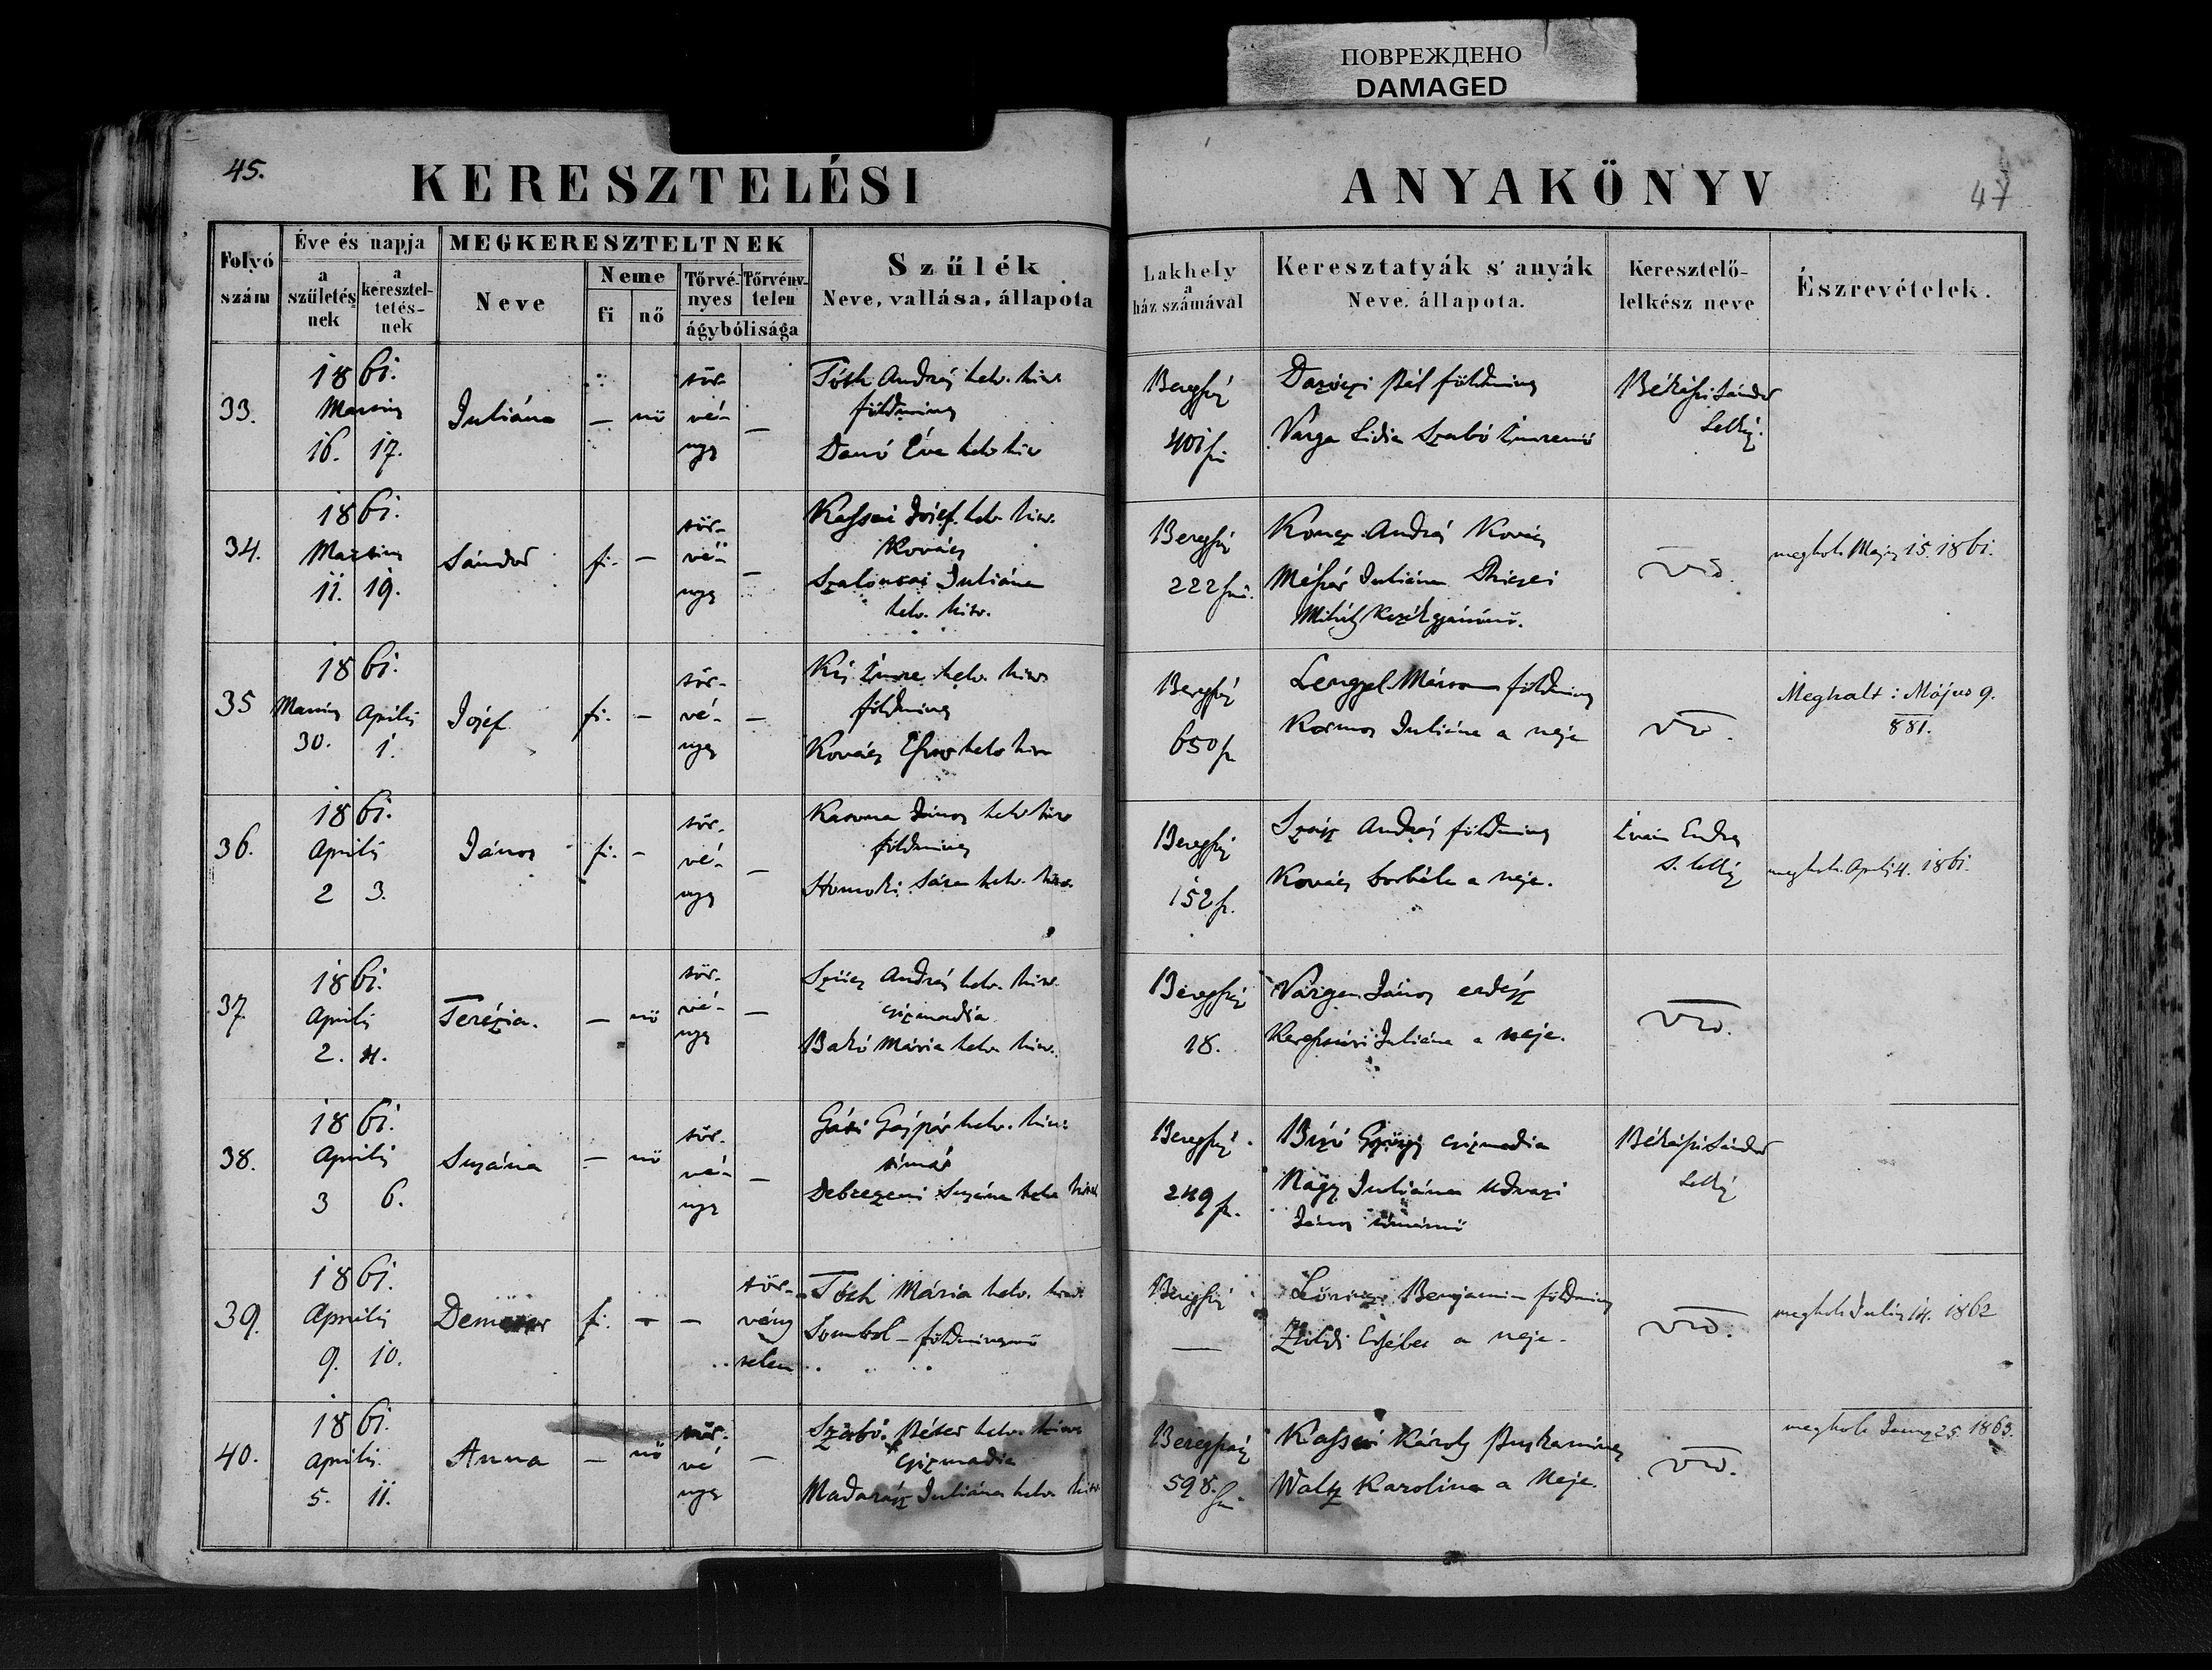 ПОВРЕЖДЕНО
DAMAGED
45.
KERESZTELÉSI
ANYAKÖNYV
47
Folyó szám
Éve és napja
a születés-nek
a keresztel-tetés-nek
MEGKERESZTELTNEK
Neve
Neme
fi
nő
Törvé-nyes
Törvény-telen
ágybólisága
Szűlék
Neve, vallása, állapota
Lakhely
a
ház számával
Keresztatyák s' anyák
Neve, állapota.
Keresztelő-
lelkész neve
Észrevételek.
33.
1861.
Martius
16. 17.
Juliána
— nö
tör-
vé-
nyes
—
Tóth András helv. hitv.
földmives
Danó Éva helv hitv
Beregszász
401
Daróczi Pál földmives
Varga Lidia Szabó Imrené
Békássi Sándor
Lelkész.
34.
1861.
Martius
11. 19.
Sándor
fi. —
tör-
vé-
nyes
—
Kassai Josef helv. hitv.
Kovács
Szalontai Juliána
helv. hitv.
Beregszász
222
Koncz András Kovács
Mészár Juliána
Mihály Kerékgyártóné.
megholt Majus 15. 1861.
35
1861.
Martius Aprilis
30. 1.
Josef
fi. —
tör-
vé-
nyes
—
Kis Imre helv. hitv
földmives
Kovács helv hitv
Beregszász
650
Lengyel földmives
Juliána a neje
Meghalt: Május 9.
881.
36.
1861.
Aprilis
2 3.
János
fi. —
tör-
vé-
nyes
—
János helv hitv
földmives
Homoki Sára helv. hitv.
Beregszász
152
Szász András földmives
Kovács Borbála a neje.
Iván Endre
s. lelkész
megholt Aprilis 4. 1861.
37.
1861.
Aprilis
2. 4.
Terézia.
— nö
tör-
vé-
nyes
—
Szücs András helv. hitv.
csizmadia
Bakó Mária helv hitv.
Beregszász
18.
Varga János erdész
Juliána a neje.
38.
1861.
Aprilis
3 6.
Suzána
— nö
tör-
vé-
nyes
—
Gáti Gáspár helv. hitv.
timár
Debreczeni Suzána helv hitv
Beregszász
249
Bizó György csizmadia
Nagy Juliána Udvari
János timárné
Békássi Sándor
Lelkész
39.
1861.
Aprilis
9. 10.
fi. — —
tör-
vény
telen
Tóth Mária helv. hitv.
földmivesnő
Beregszász
—
Lőrincz Benjamin földmives
Zöldi Erzsébet a neje.
megholt Julius 14. 1862
40.
1861.
Aprilis
5. 11.
Anna
— nö
tör-
vé
nyes
—
Szabó Péter helv. hitv
csizmadia
Madarász Juliána helv. hitv
Beregszász
598.
Kassai Károly
Waltz Karolina a Neje.
25. 1863.